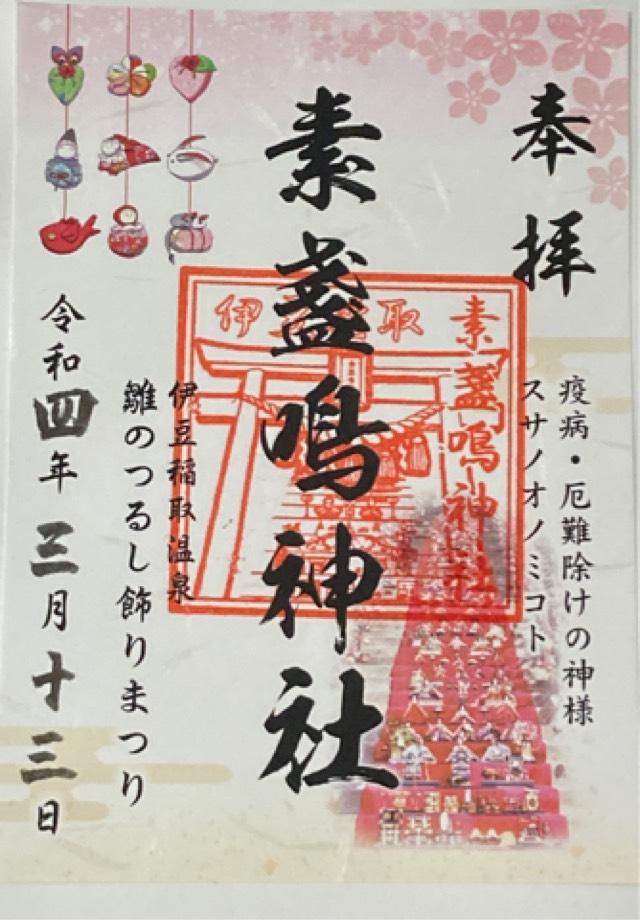 奉拝
疫病・厄難除けの神様
スサノオノミコト
素盞鳴神社
素盞鳴神社
伊
取
伊豆稲取温泉
雛のつるし飾りまつり
令和四年三月十三日